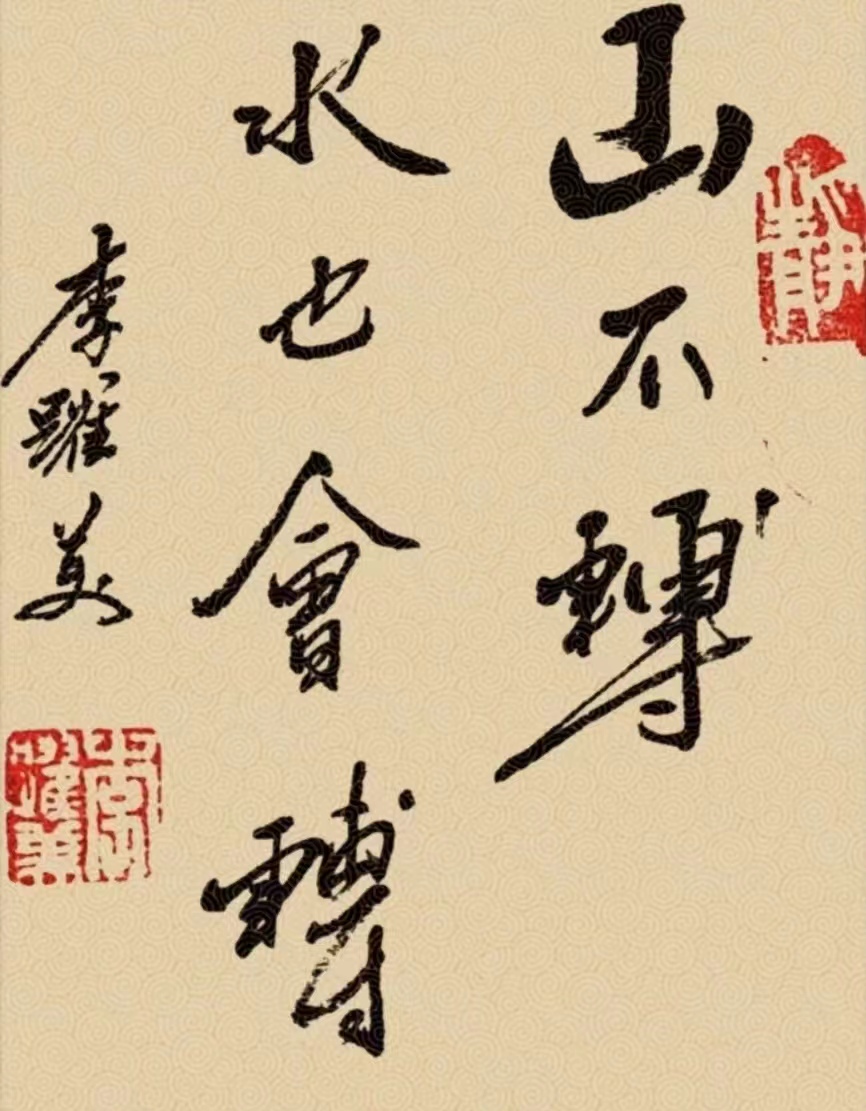 山不轉
水也會轉
李躍美